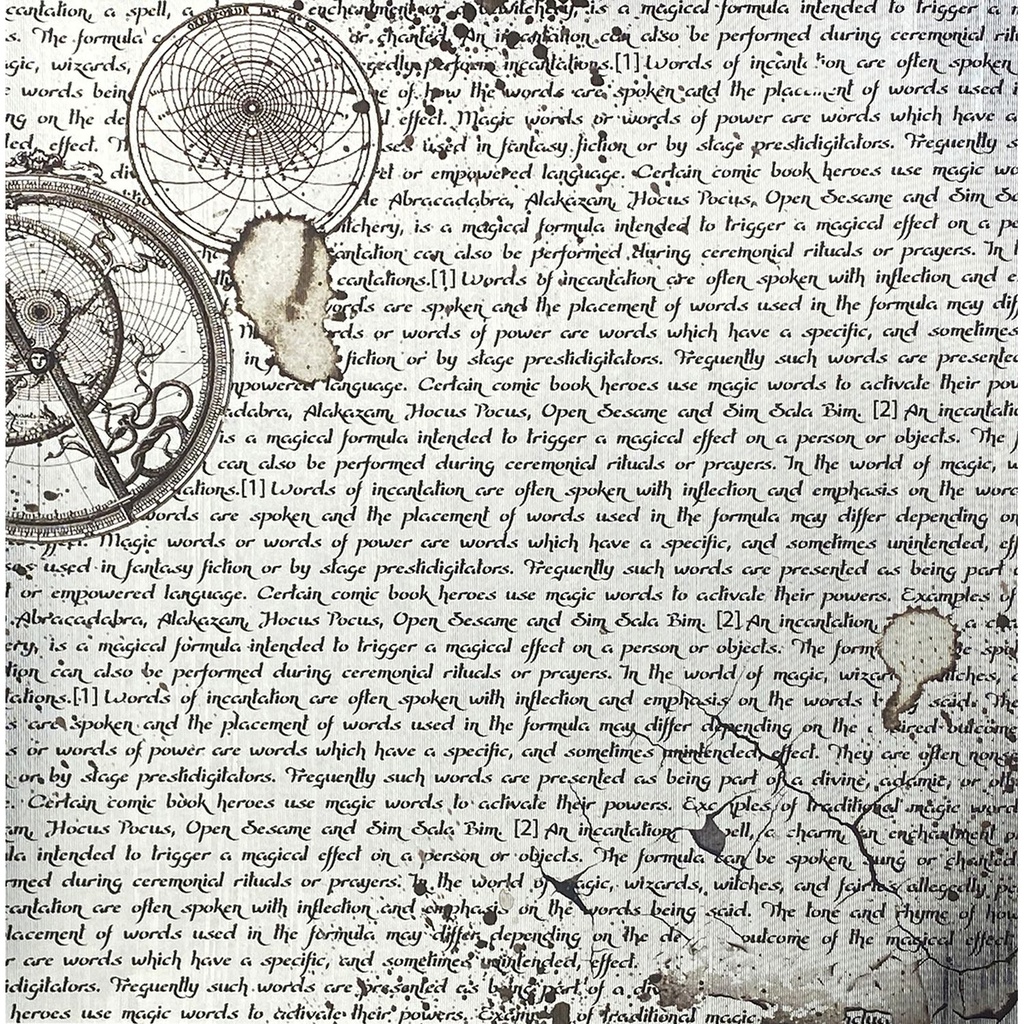 cantation, a spell, a enchantment or a bewitchery, is a magical formula intended to trigger a m
s. The formula c or chanted. An incantation can also be performed during ceremonial rit
gic, wizards, egedly perform incantations.[1] Words of incant ion are often spoken
e words bein e of how the words are spoken and the placement of words used i
ng on the de effect. Magic words or words of power are words which have a
ded effect. Th ses used in fantasy fiction or by stage prestidigitators. Frequently s
div et or empowered language. Certain comic book heroes use magic wo
de Abracadabra, Alakazam, Hocus Pocus, Open Sesame and Sim Sa
itchery, is a magical formula intended to trigger a magical effect on a pe
antation can also be performed during ceremonial rituals or prayers. In t
cantations.[1] Words of incantation are often spoken with inflection and e
ords are spoken and the placement of words used in the formula may diff
M rds or words of power are words which have a specific, and sometimes
in fiction or by stage prestidigitators. Frequently such words are presente
npowered language. Certain comic book heroes use magic words to activate their pow
adabra, Alakazam, Hocus Pocus, Open Sesame and Sim Sala Bim. [2] An incantatio
is a magical formula intended to trigger a magical effect on a person or objects. The f
can also be performed during ceremonial rituals or prayers. In the world of magic, w
tations.[1] Words of incantation are often spoken with inflection and emphasis on the word
words are spoken and the placement of words used in the formula may differ depending on
effect. Magic words or words of power are words which have a specific, and sometimes unintended, eff
ses used in fantasy fiction or by stage prestidigitators. Frequently such words are presented as being part o
t or empowered language. Certain comic book heroes use magic words to activate their powers. Examples of
Abracadabra, Alakazam, Hocus Pocus, Open Sesame and Sim Sala Bim. [2] An incantation, a cha
ery, is a magical formula intended to trigger a magical effect on a person or objects. The form be spo
tion can also be performed during ceremonial rituals or prayers. In the world of magic, wizar witches, a
tations.[1] Words of incantation are often spoken with inflection and emphasis on the words said. The
s are spoken and the placement of words used in the formula may differ depending on the sired outcome
s or words of power are words which have a specific, and sometimes unintended, effect. They are often nons
or by stage prestidigitators. Frequently such words are presented as being part of a divine, adamic, or oth
e. Certain comic book heroes use magic words to activate their powers. Exa ples of traditional magic word
am, Hocus Pocus, Open Sesame and Sim Sala Bim. [2] An incantation, spell, a charm, an enchantment o
la intended to trigger a magical effect on a person or objects. The formula can be spoken, sung or chanted
rmed during ceremonial rituals or prayers. In the world of magic, wizards, witches, and fairies allegedly pe
cantation are often spoken with inflection and emphasis on the words being said. The tone and rhyme of how
lacement of words used in the formula may differ depending on the de outcome of the magical effect
r are words which have a specific, and sometimes unintended, effect.
idigitators. Frequently such words are presented as being part of a div
heroes use magic words to activate their powers. Exam of traditional magic